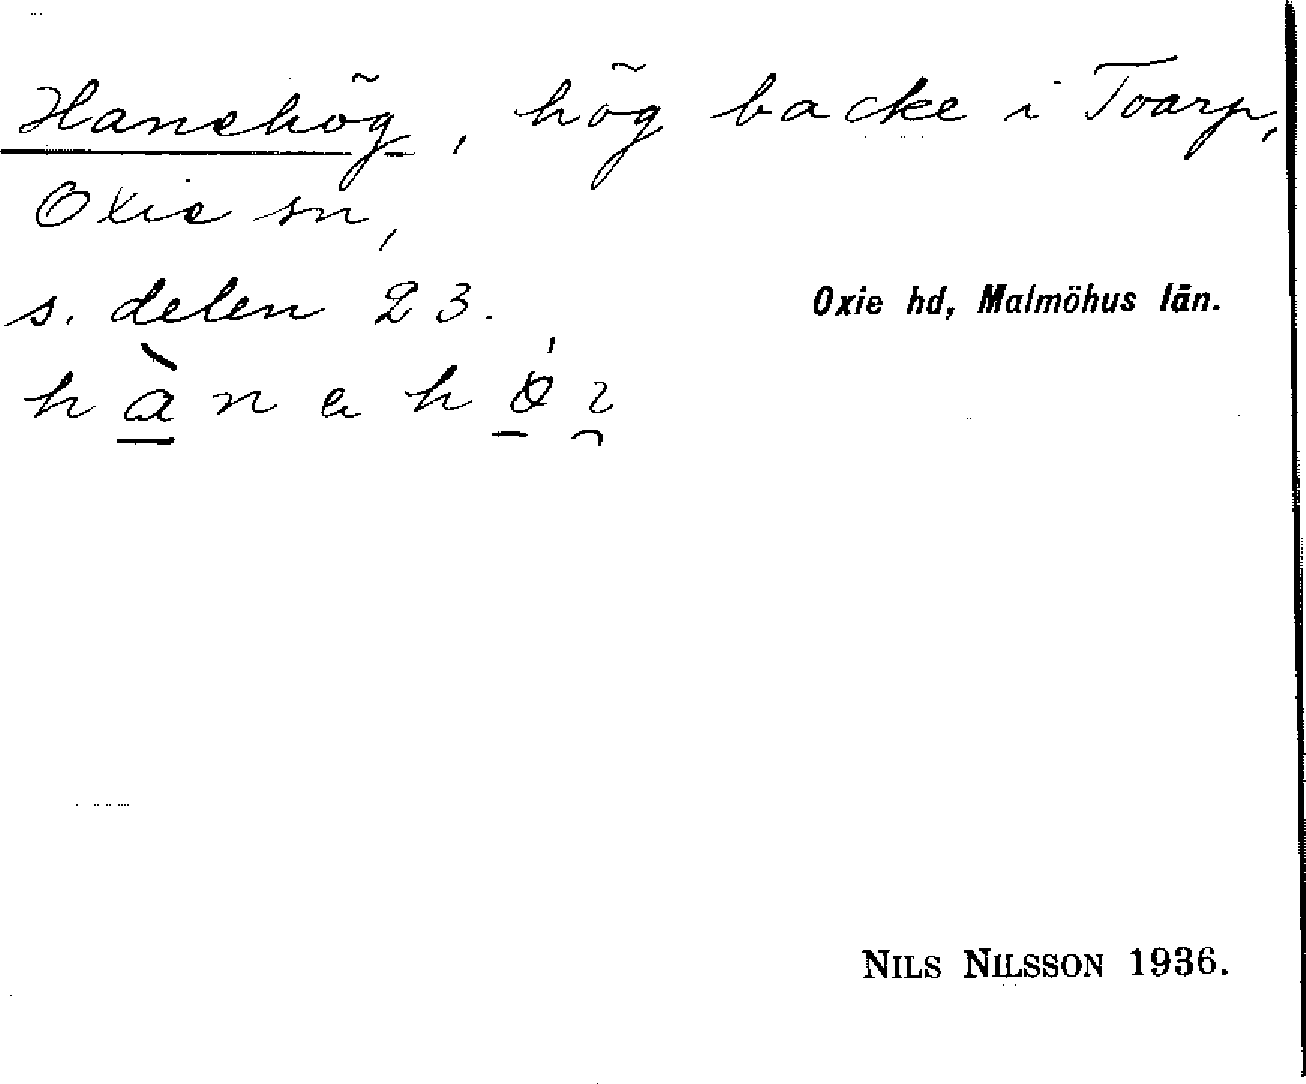 Hanehög, hög backe i Toarp,
Oxie sn,
s. delen 23.
Oxie hd, Malmöhus län.
NILS NILSSON 1936.